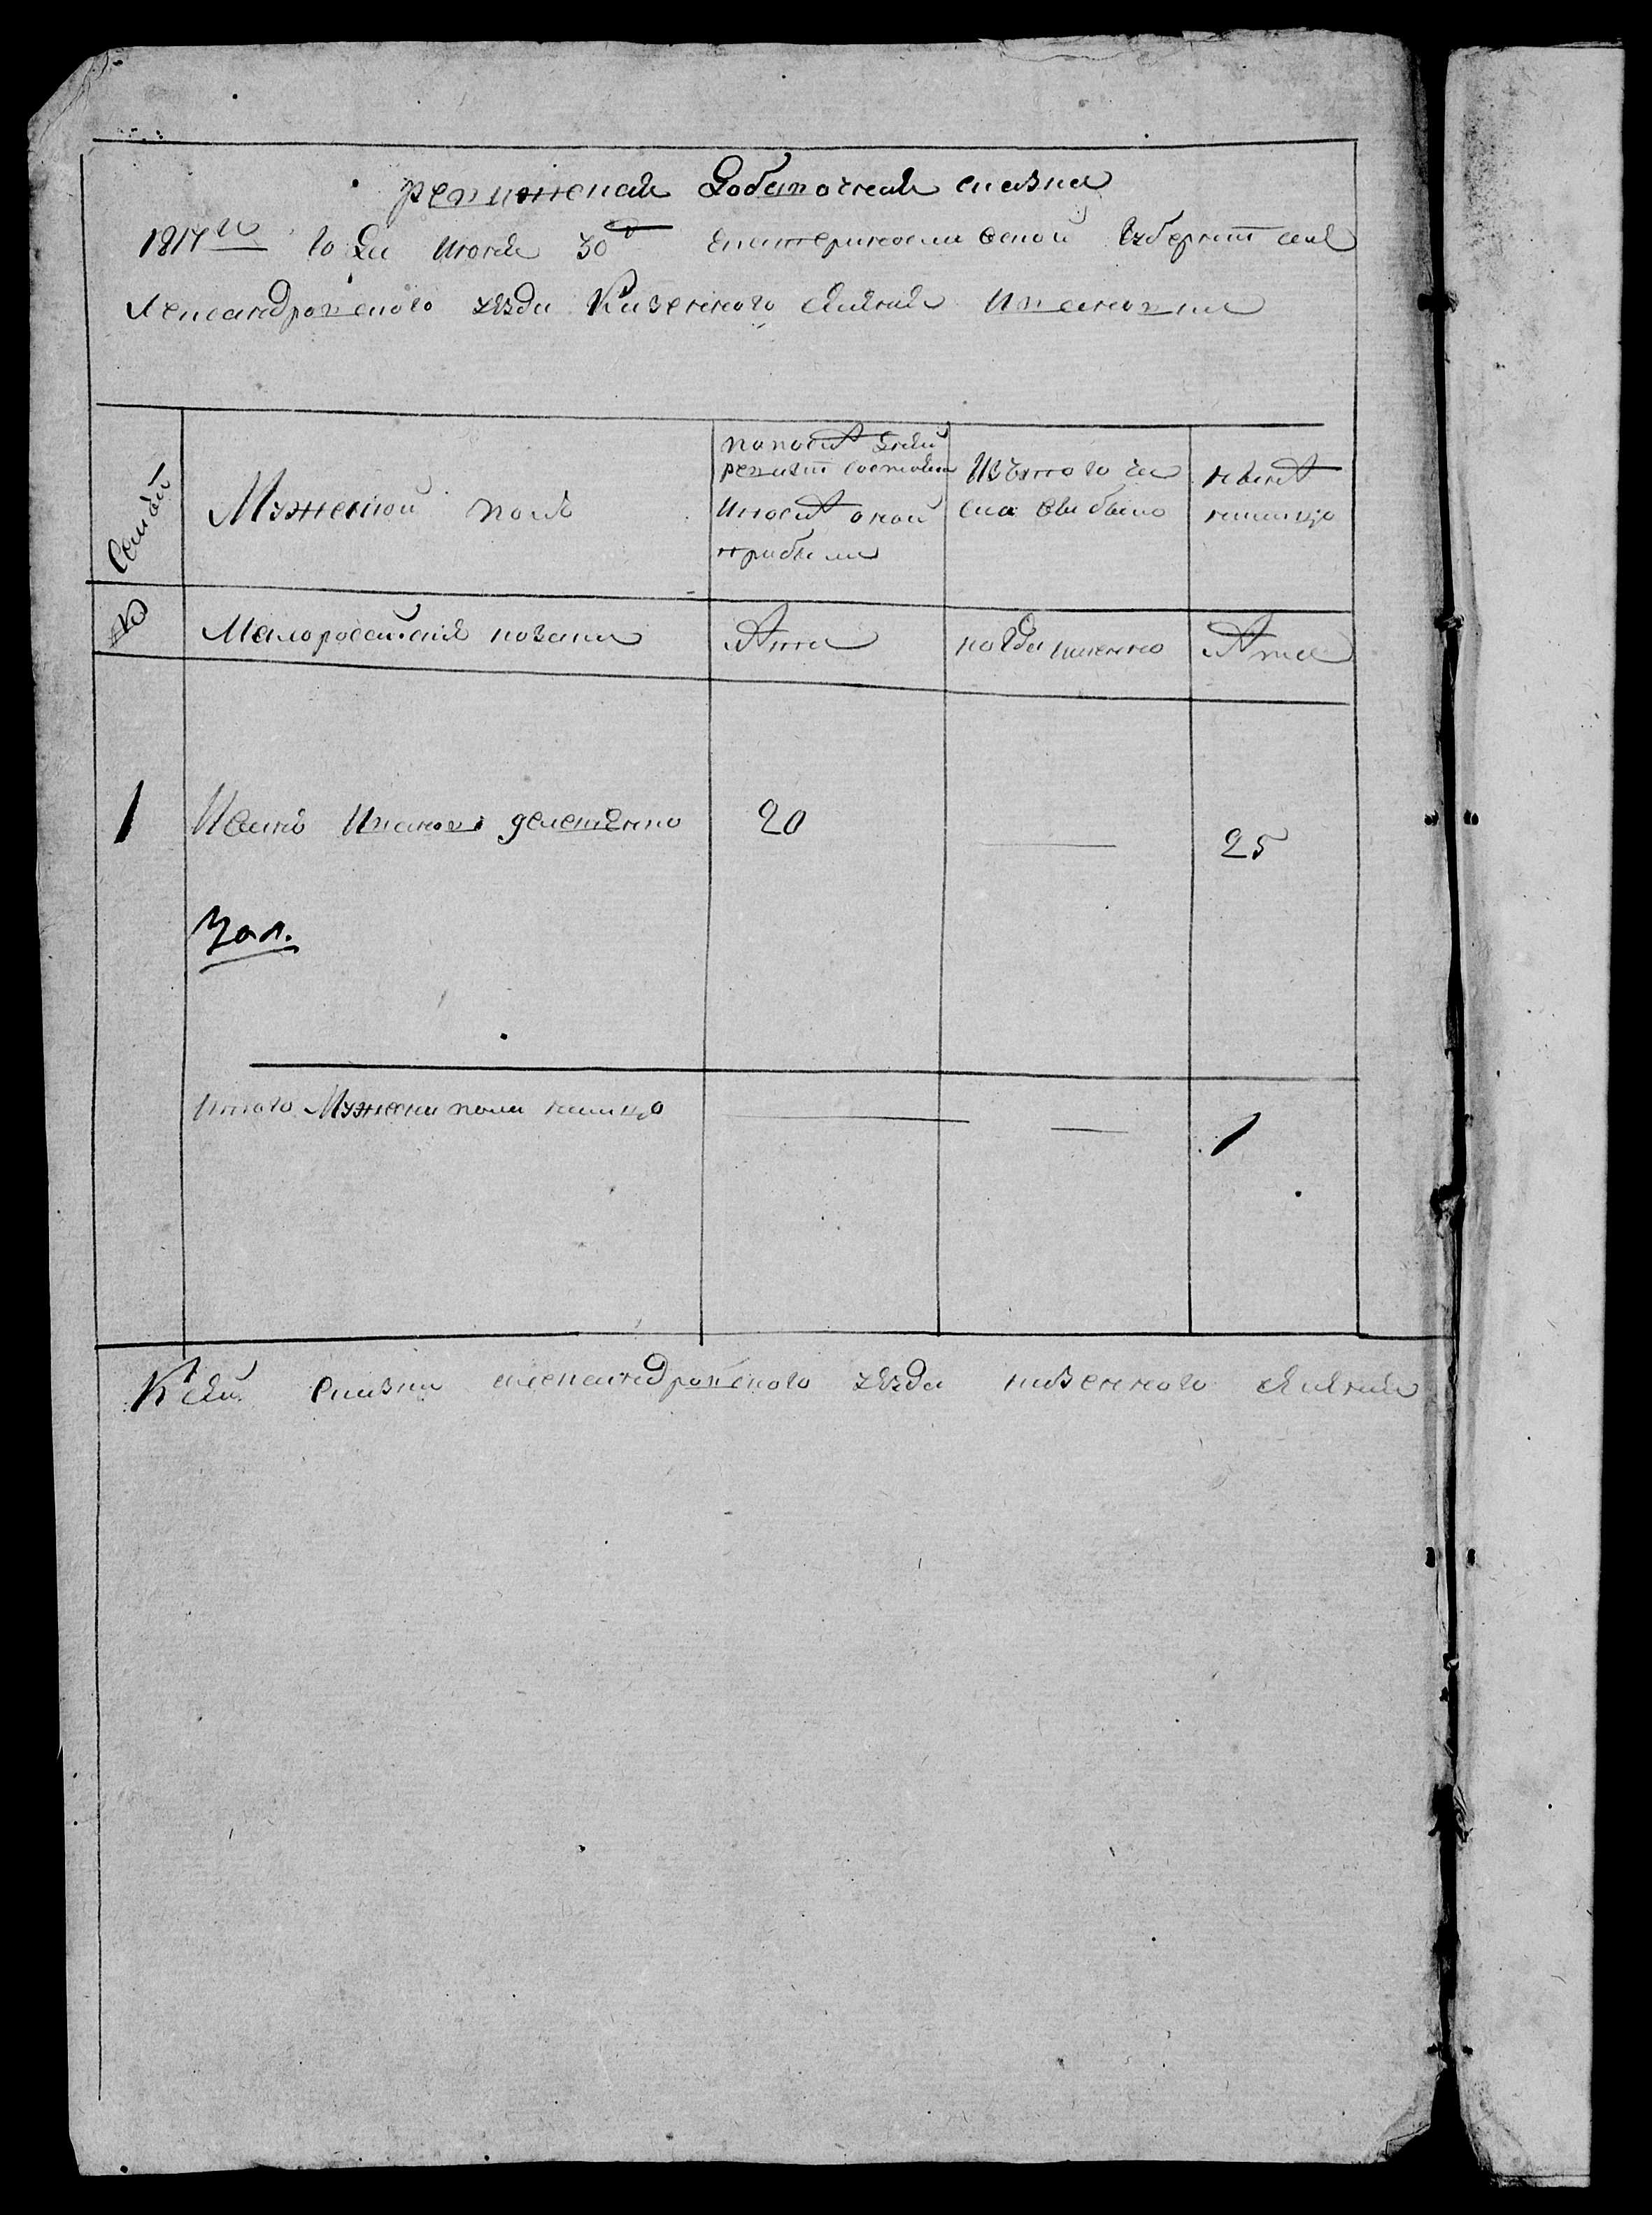 ревижская Добавочная сказка
1817го года июня 30го Екатеринославской губернии села
Александровского уезда Казенного селения Ивановки
Семьи
Мужеской полъ
По последней
ревизии состояло
и после оной
прибыли
Изъ того чи
сла выбыло
ныне
налицо
№
Малоросейския козаки
Лета
когда именно
Лета
1
Иванъ Ивановъ
20
25
Итого Мужеска пола налицо
1
К сей сказки александровского уезда казенного селения